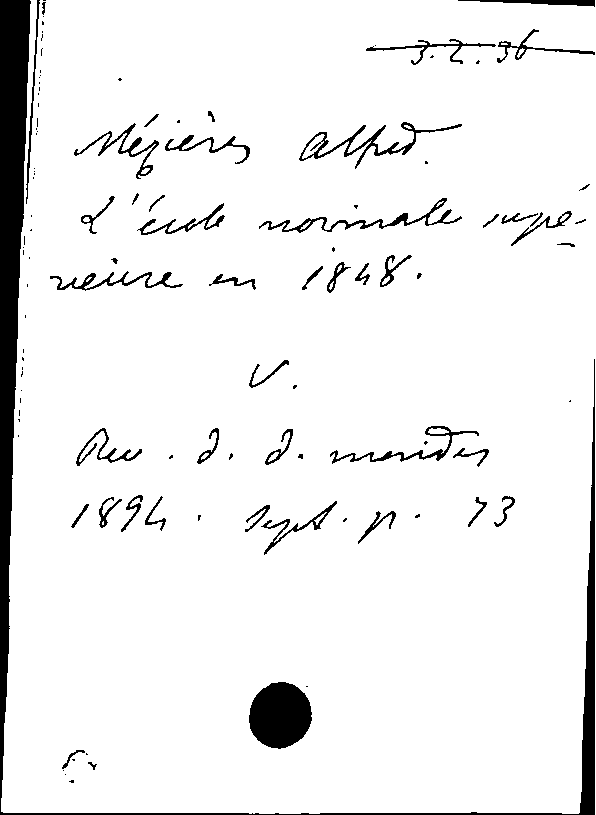 3.2.36
Mézières Alfred.
L'école normale supé-
rieure en 1848.
V.
Rev. d. d. mondes
1894. sept. p. 73